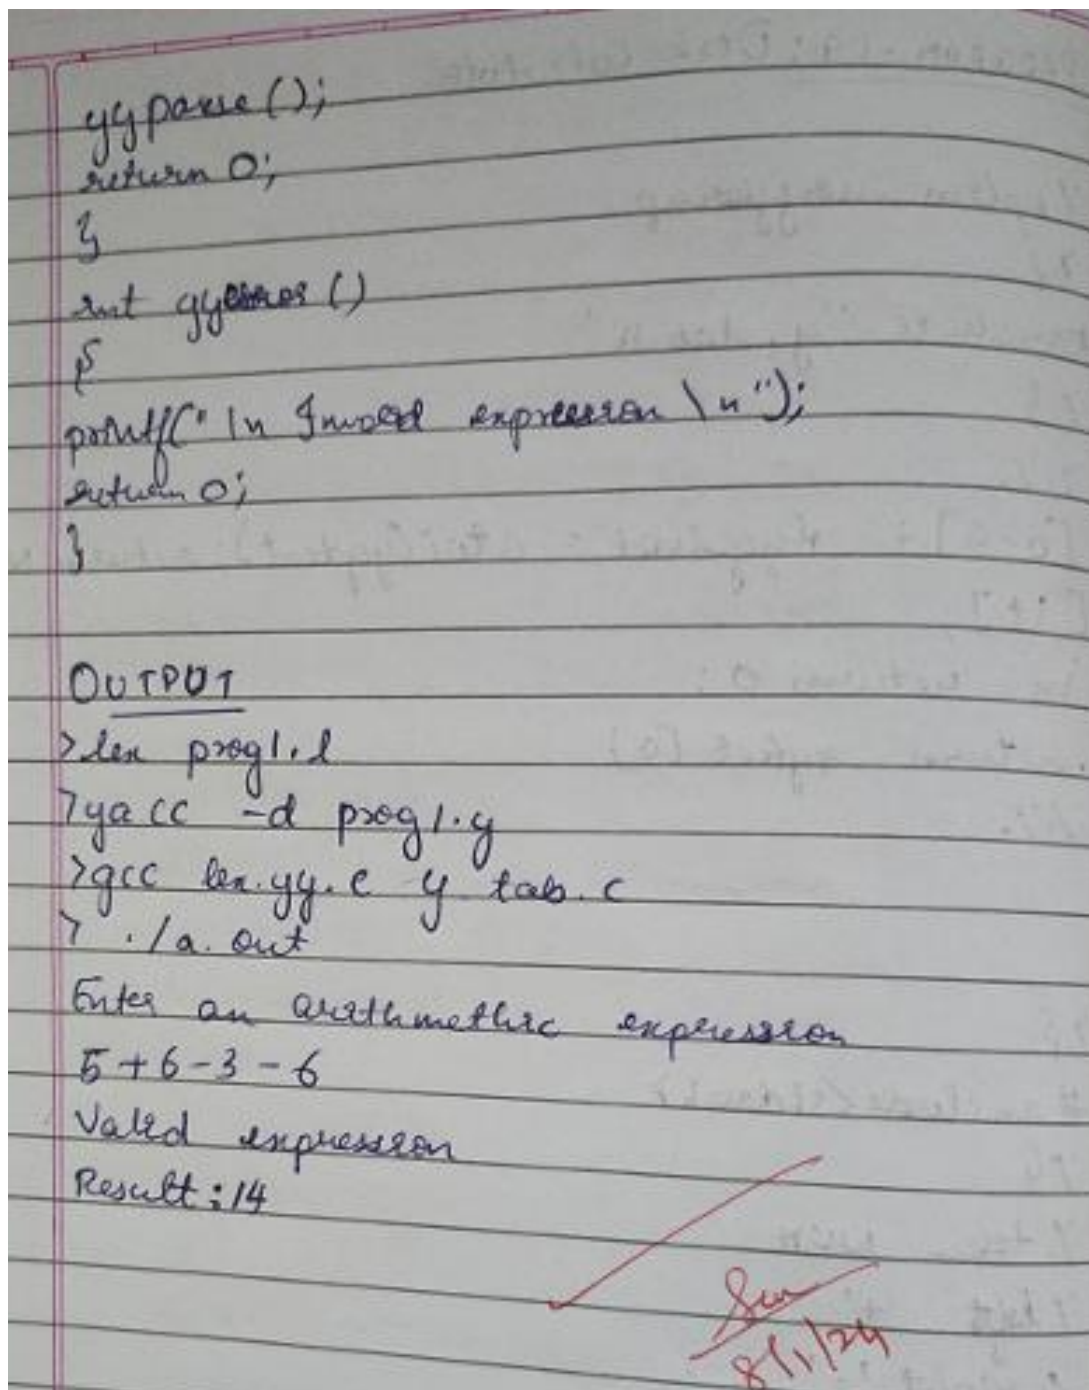 yyparse();
return 0;
}
int yyerror()
{
printf("\n Invalid expression \n");
return 0;
}
OUTPUT
>lex prog1.l
>yacc -d prog1.y
>gcc lex.yy.c y.tab.c
> ./a.out
Enter an arithmethic expression
5+6-3-6
Valid expression
Result:14
8/1/24